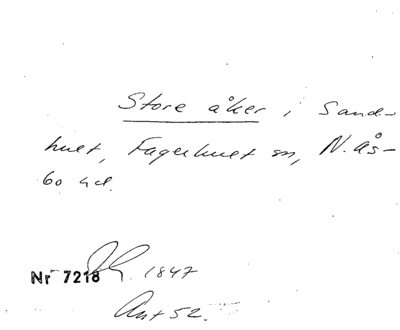 Store åker i Sand-
hult, Fagerhult sn, N. Ås-
bo hd.
Nr 7218 1847
Ant 52.